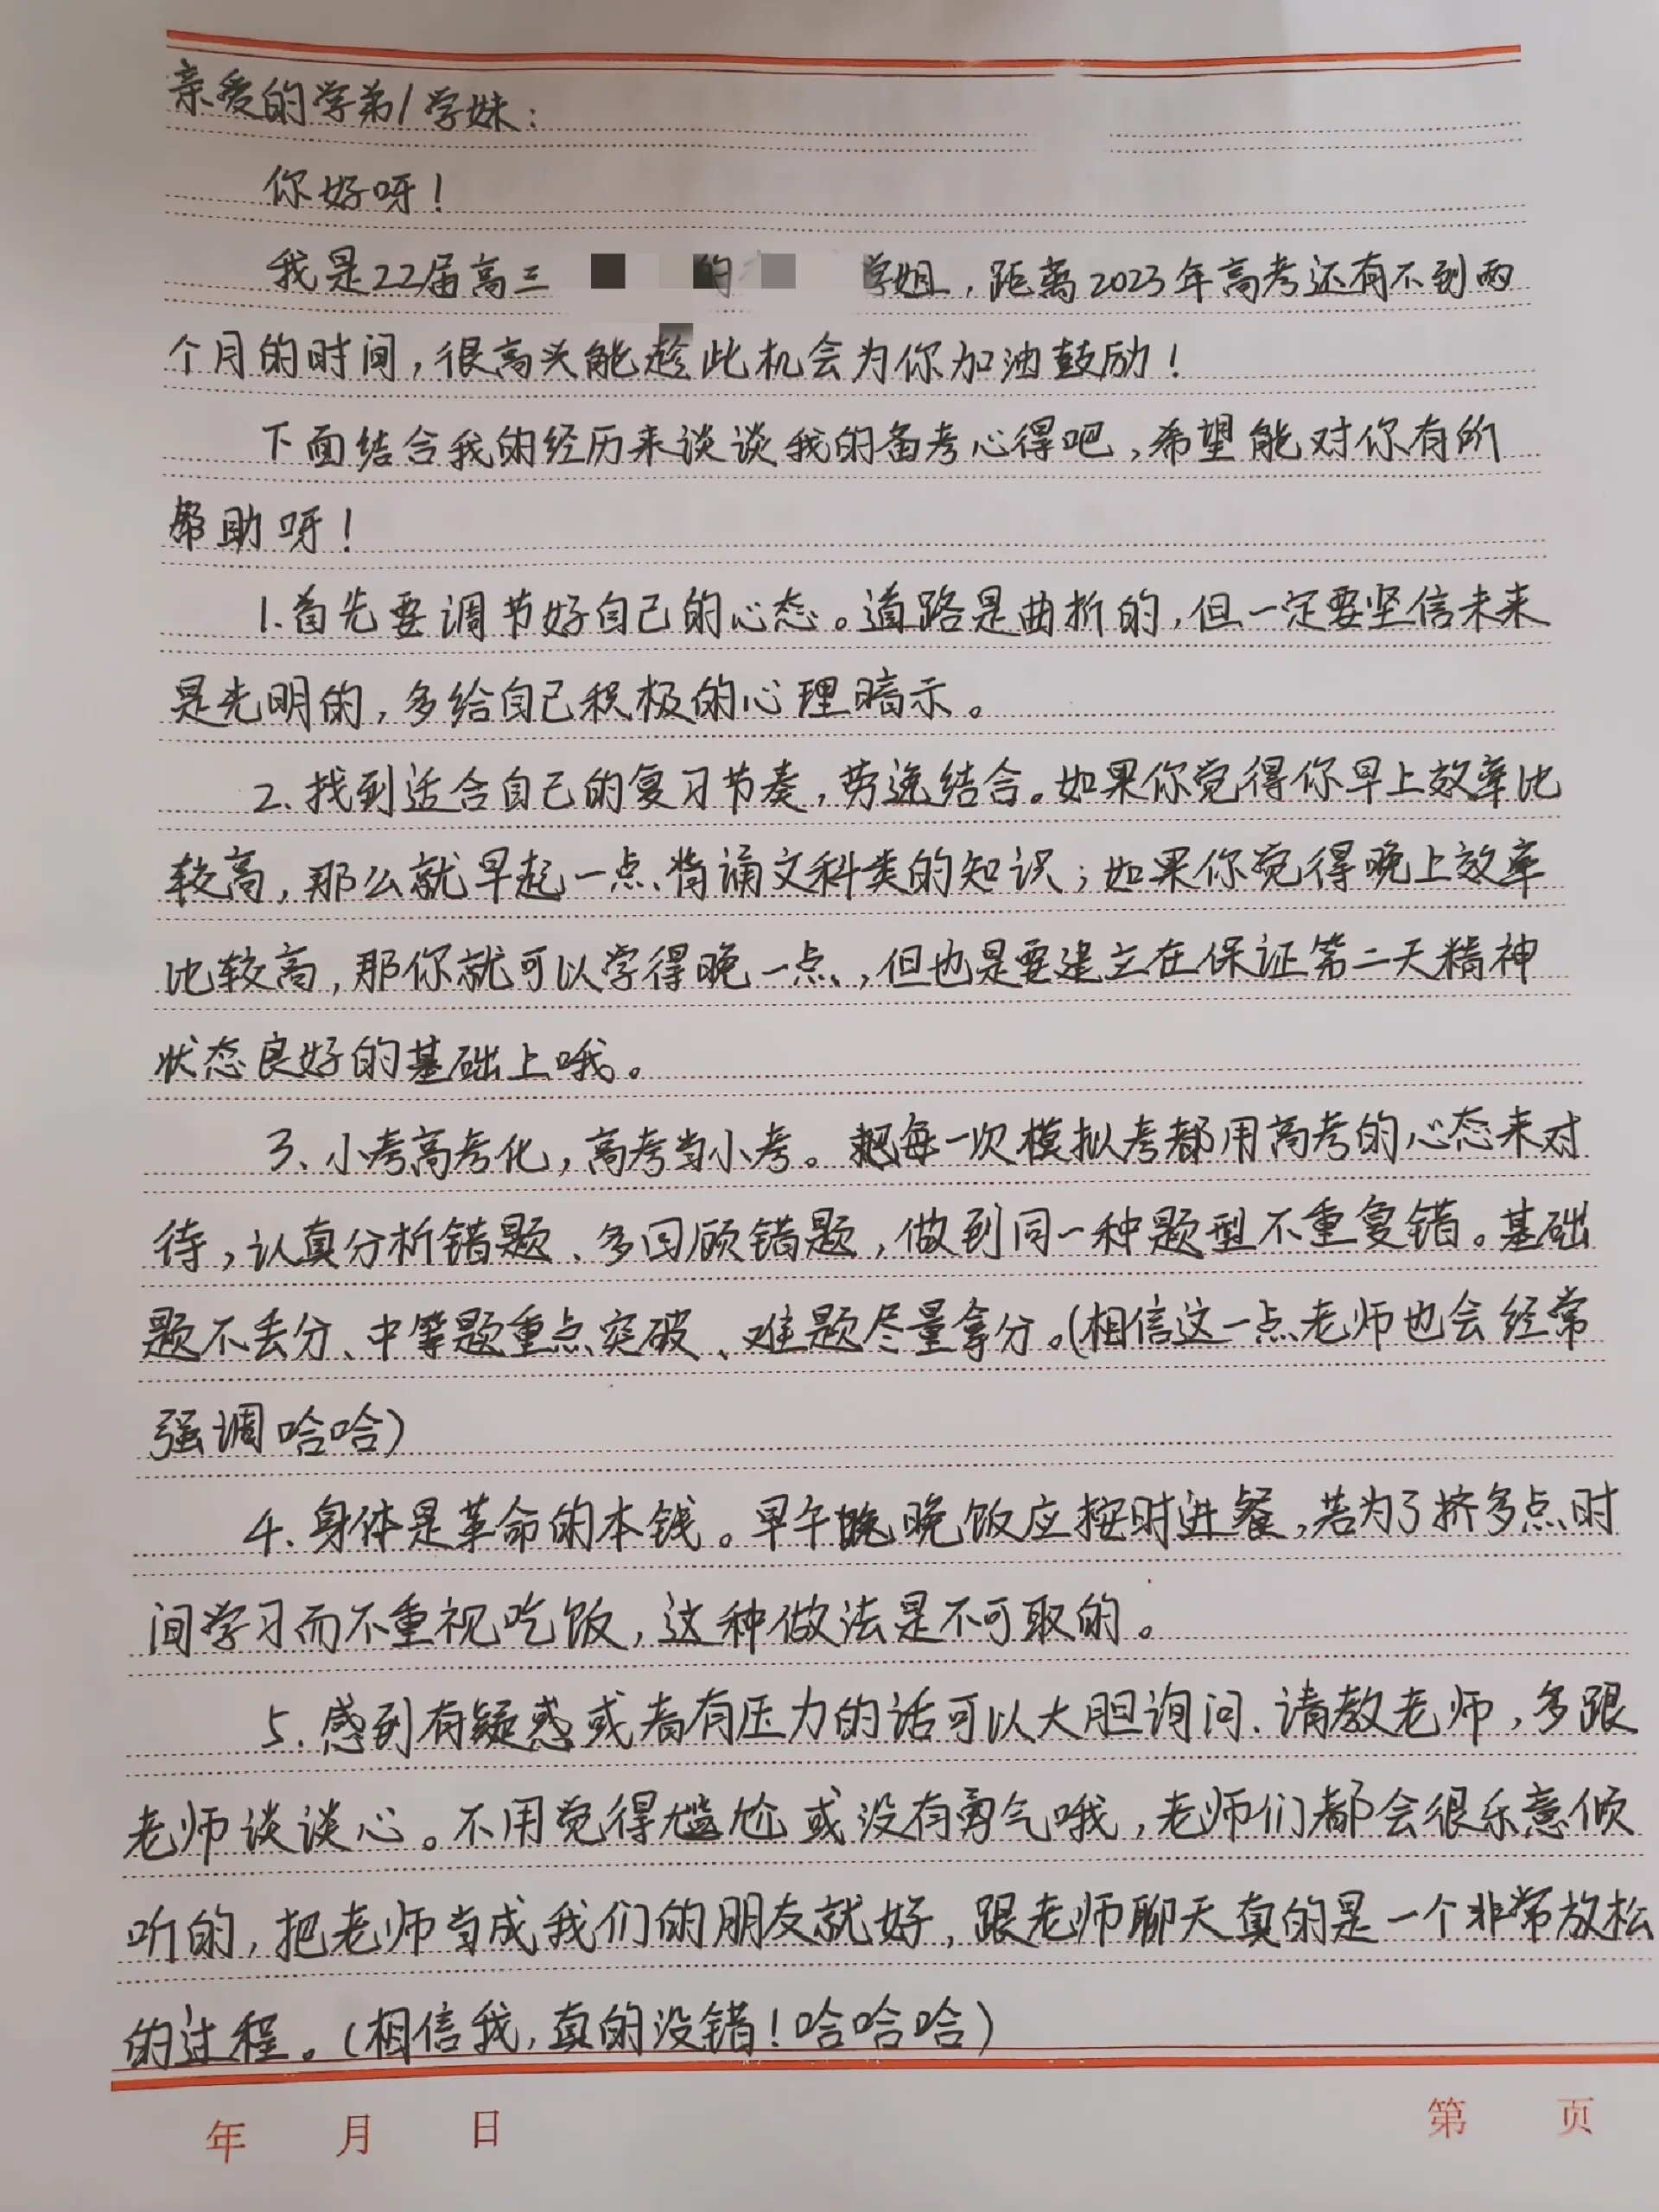 亲爱的学弟/学妹:
你好呀!
我是22届高三 的 学姐,距离2023年高考还有不到两
个月的时间,很高兴能趁此机会为你加油鼓励!
下面结合我的经历来谈谈我的备考心得吧,希望能对你有所
帮助呀!
1.首先要调节好自己的心态。道路是曲折的,但一定要坚信未来
是光明的,多给自己积极的心理暗示。
2、找到适合自己的复习节奏,劳逸结合。如果你觉得你早上效率比
较高,那么就早起一点背诵文科类的知识;如果你觉得晚上效率
比较高,那你就可以学得晚一点,但也是要建立在保证第二天精神
状态良好的基础上哦。
3、小考高考化,高考当小考。把每一次模拟考都用高考的心态来对
待,认真分析错题、多回顾错题,做到同一种题型不重复错。基础
题不丢分、中等题重点突破、难题尽量拿分。(相信这一点老师也会经常
强调哈哈)
4、身体是革命的本钱。早午晚饭应按时进餐,若为了挤多点时
间学习而不重视吃饭,这种做法是不可取的。
5、感到有疑惑或者有压力的话可以大胆询问、请教老师,多跟
老师谈谈心。不用觉得尴尬或没有勇气哦,老师们都会很乐意倾
听的,把老师当成我们的朋友就好,跟老师聊天真的是一个非常放松
的过程。(相信我,真的没错!哈哈哈)
年 月 日 第 页